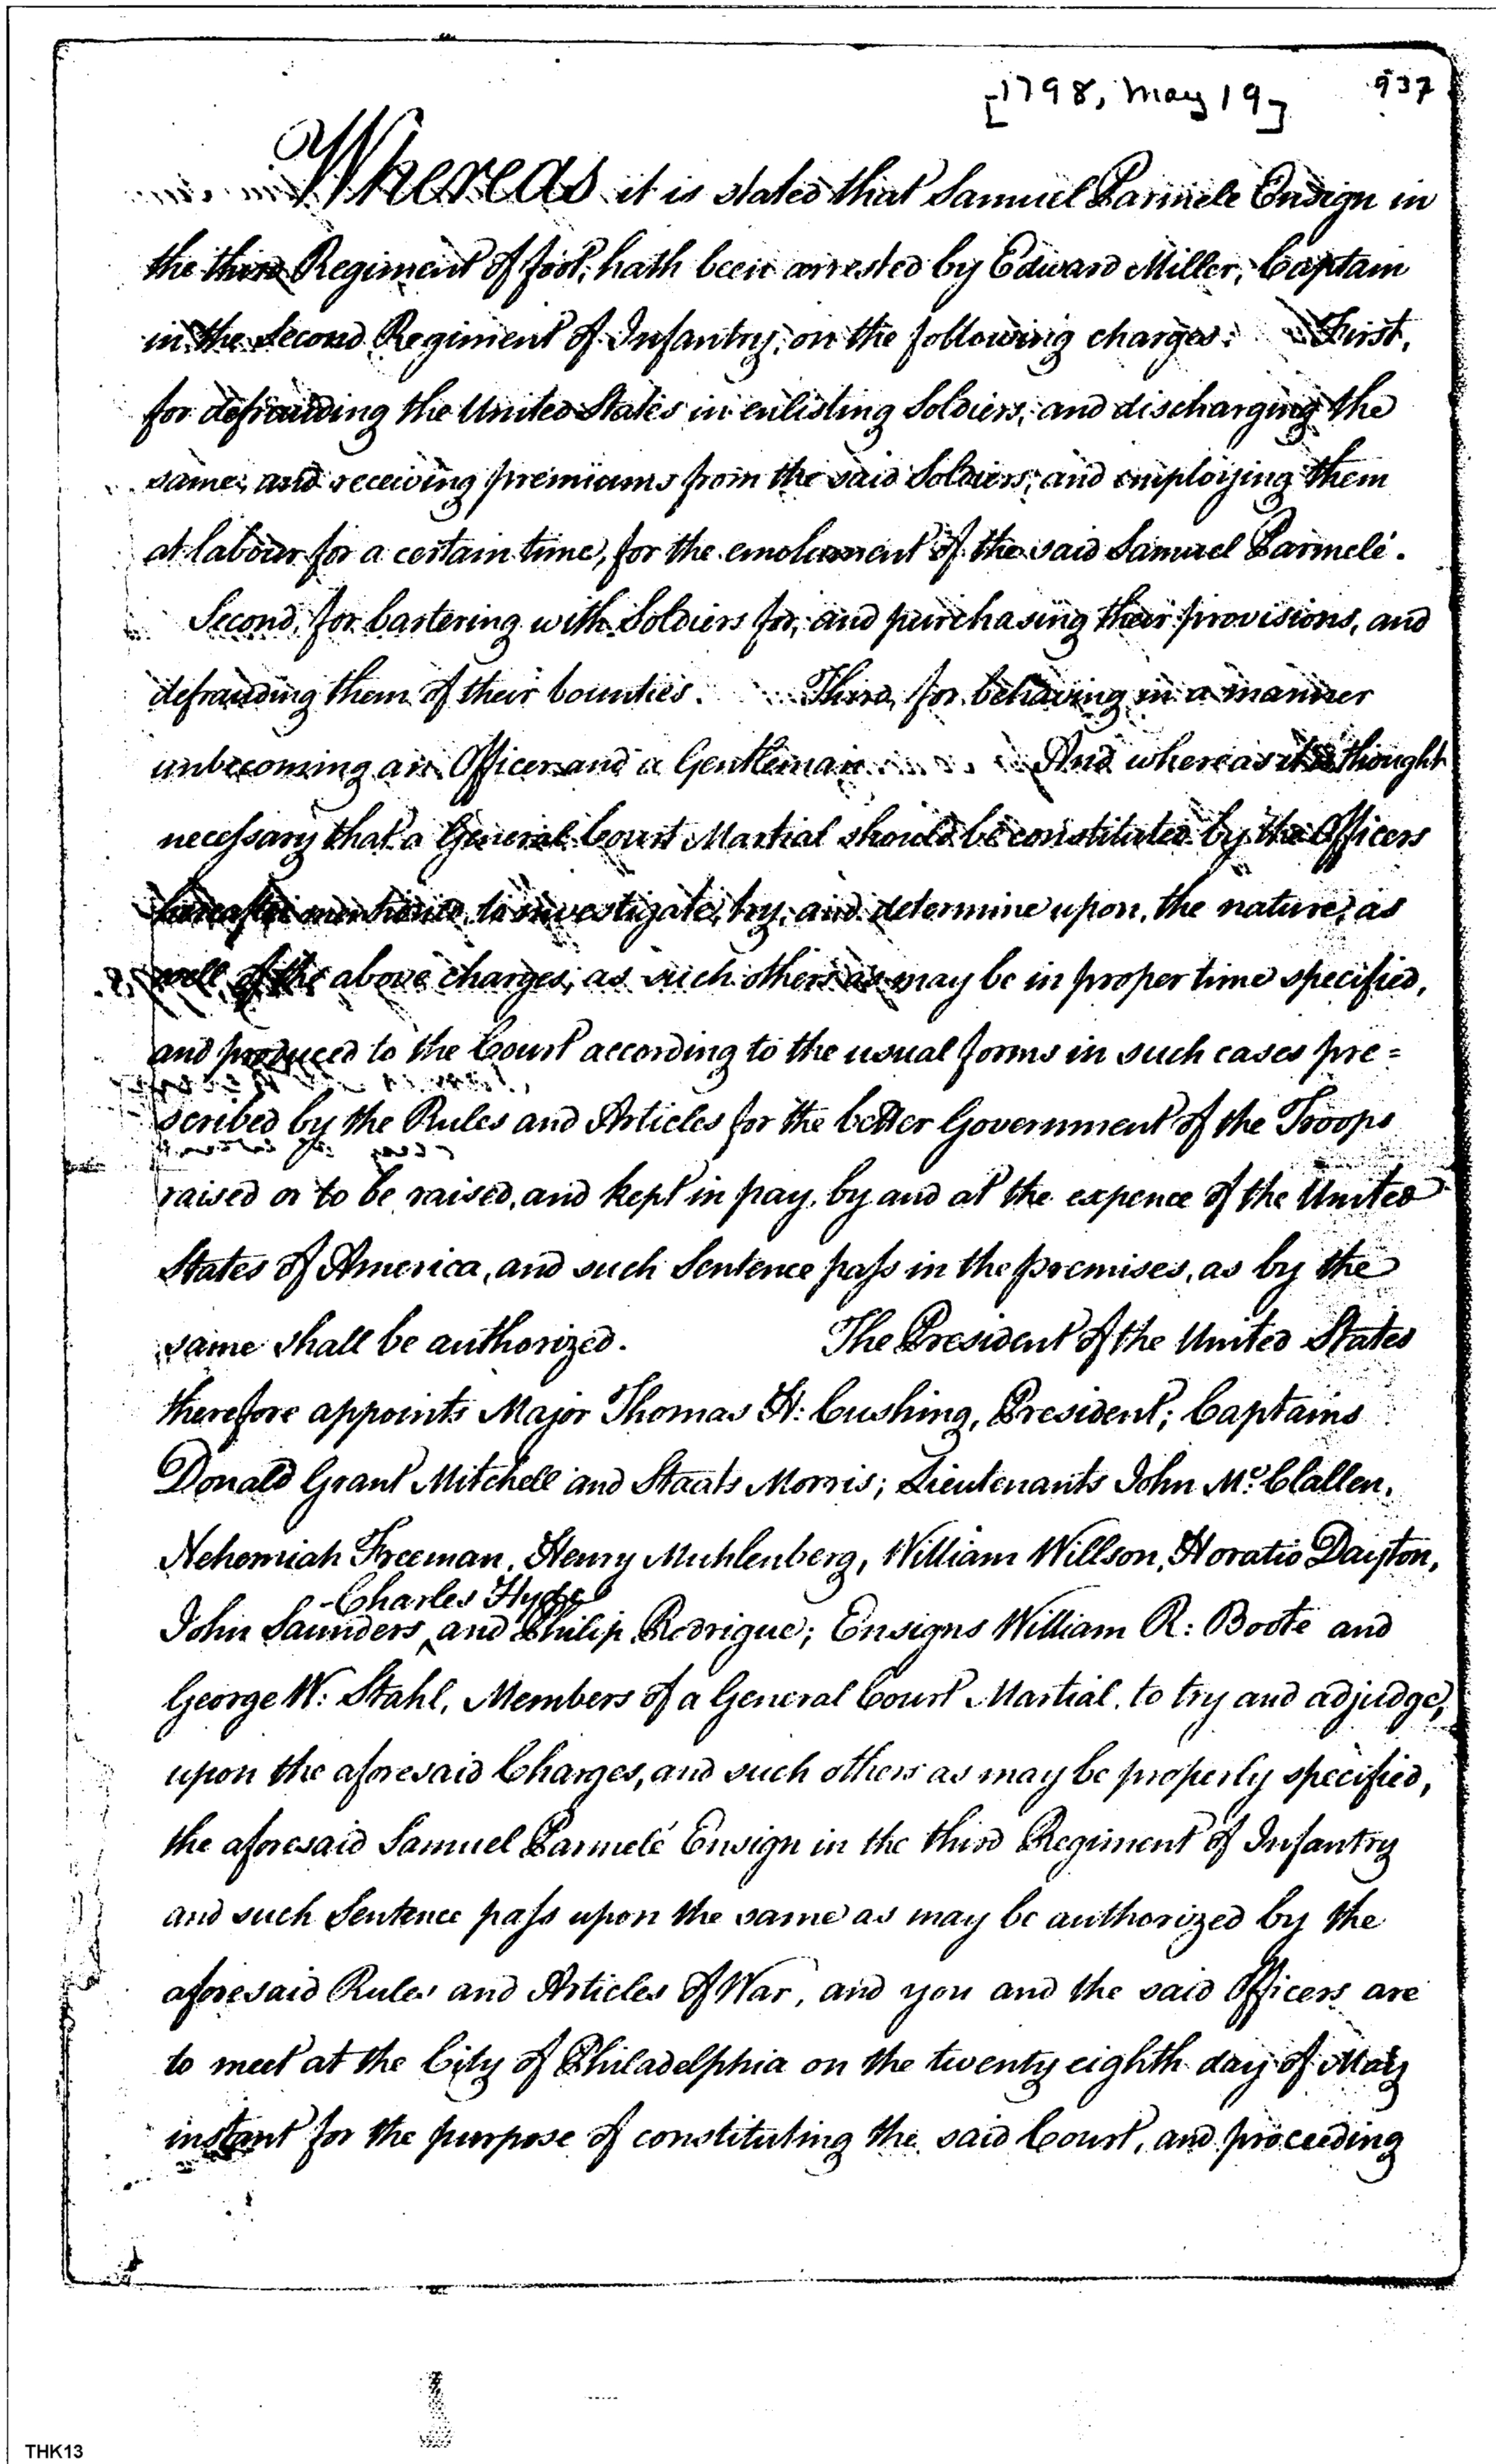 [1798, May 19] 937
Whereas it is stated that Samuel Parmele Ensign in
the third Regiment of foot, hath been arrested by Edward Miller, Captain
in the Second Regiment of Infantry, on the following charges: First,
for defrauding the United States in enlisting Soldiers, and discharging the
same, and receiving premiums from the said Soldiers, and employing them
at labour for a certain time, for the emolument of the said Samuel Parmelé.
Second, for bartering with Soldiers for, and purchasing their provisions, and
defrauding them of their bounties. Third, for behaving in a manner
unbecoming an Officer and a Gentleman And whereas it is thought
necessary that a General Court Martial should be constituted by the Officers
hereafter mentioned, to investigate, try, and determine upon, the nature, as
well of the above charges, as such others as may be in proper time specified,
and produced to the Court according to the usual forms in such cases pre=
scribed by the Rules and Articles for the better Government of the Troops
raised or to be raised, and kept in pay, by and at the expence of the United
States of America, and such Sentence pass in the premises, as by the
same shall be authorized. The President of the United States
therefore appoints Major Thomas H: Cushing, President; Captains
Donald Grant Mitchell and Staats Morris; Lieutenants John Mc. Clallen,
Nehemiah Freeman, Henry Muhlenberg, William Willson, Horatio Dayton,
Charles Hyde
John Saunders ^ and Philip Rodrigue; Ensigns William R: Boote and
George W: Stahl, Members of a General Court Martial, to try and adjudge,
upon the aforesaid Charges, and such others as may be properly specified,
the aforesaid Samuel Parmelé Ensign in the third Regiment of Infantry
and such Sentence pass upon the same as may be authorized by the
aforesaid Rules and Articles of War, and you and the said Officers are
to meet at the City of Philadelphia on the twenty eighth day of May
instant for the purpose of constituting the said Court, and proceeding
THK13